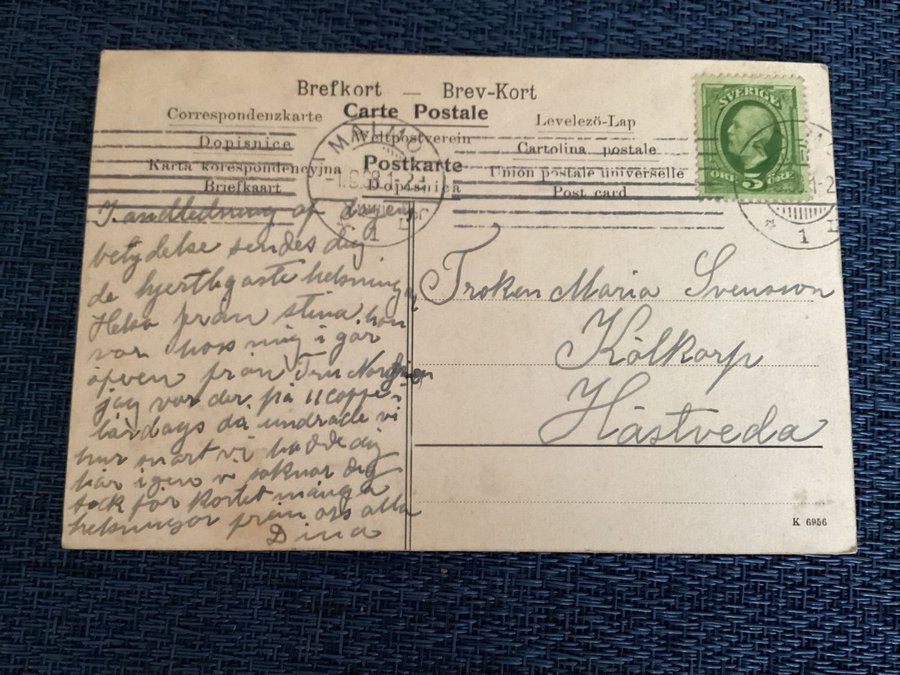 Brefkort — Brev-Kort
Correspondenzkarte Carte Postale Levelezö-Lap
Dopisnice Weltpostverein Cartolina postale
Karta korespondencyjna Postkarte Union postale universelle
Briefkaart Dopisnica Post card
SVERIGE
ÖRE 5 ÖRE
MALMÖ
1
1
af dagens
betydelse sendes dig
de hjertligaste helsningar
Helsa från Stina hon
var hoss mig i går
äfven från Fru
jag var der på
lördags då undrade vi
hur snart vi hade dig
här igen vi saknar dig
tack för kortet många
helsningar från oss alla
Dina
Fröken Maria Svensson
Kölkarp
Hästveda
K 6956